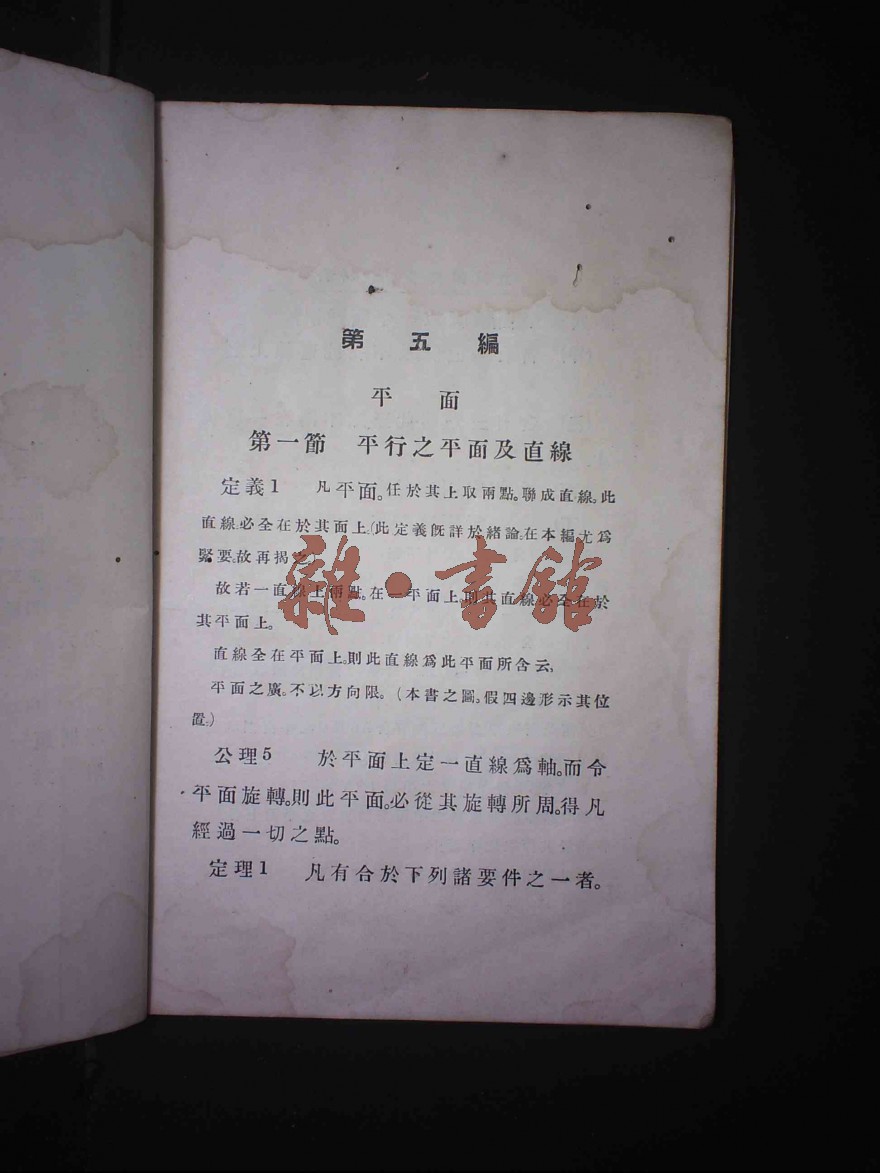 第五編
平面
第一節 平行之平面及直線
定義1 凡平面。任於其上取兩點。聯成直線。此
直線。必全在於其面上。(此定義旣詳於緒論。在本編尤爲
緊要。故再揭之)
故若一直線上兩點。在一平面上。則其直線必全在於
其平面上。
直線全在平面上。則此直線爲此平面所含云。
平面之廣。不以方向限。(本書之圖。假四邊形示其位
置。)
公理5 於平面上定一直線爲軸。而令
平面旋轉。則此平面。必從其旋轉所周。得凡
經過一切之點。
定理1 凡有合於下列諸要件之一者。
雜·書館